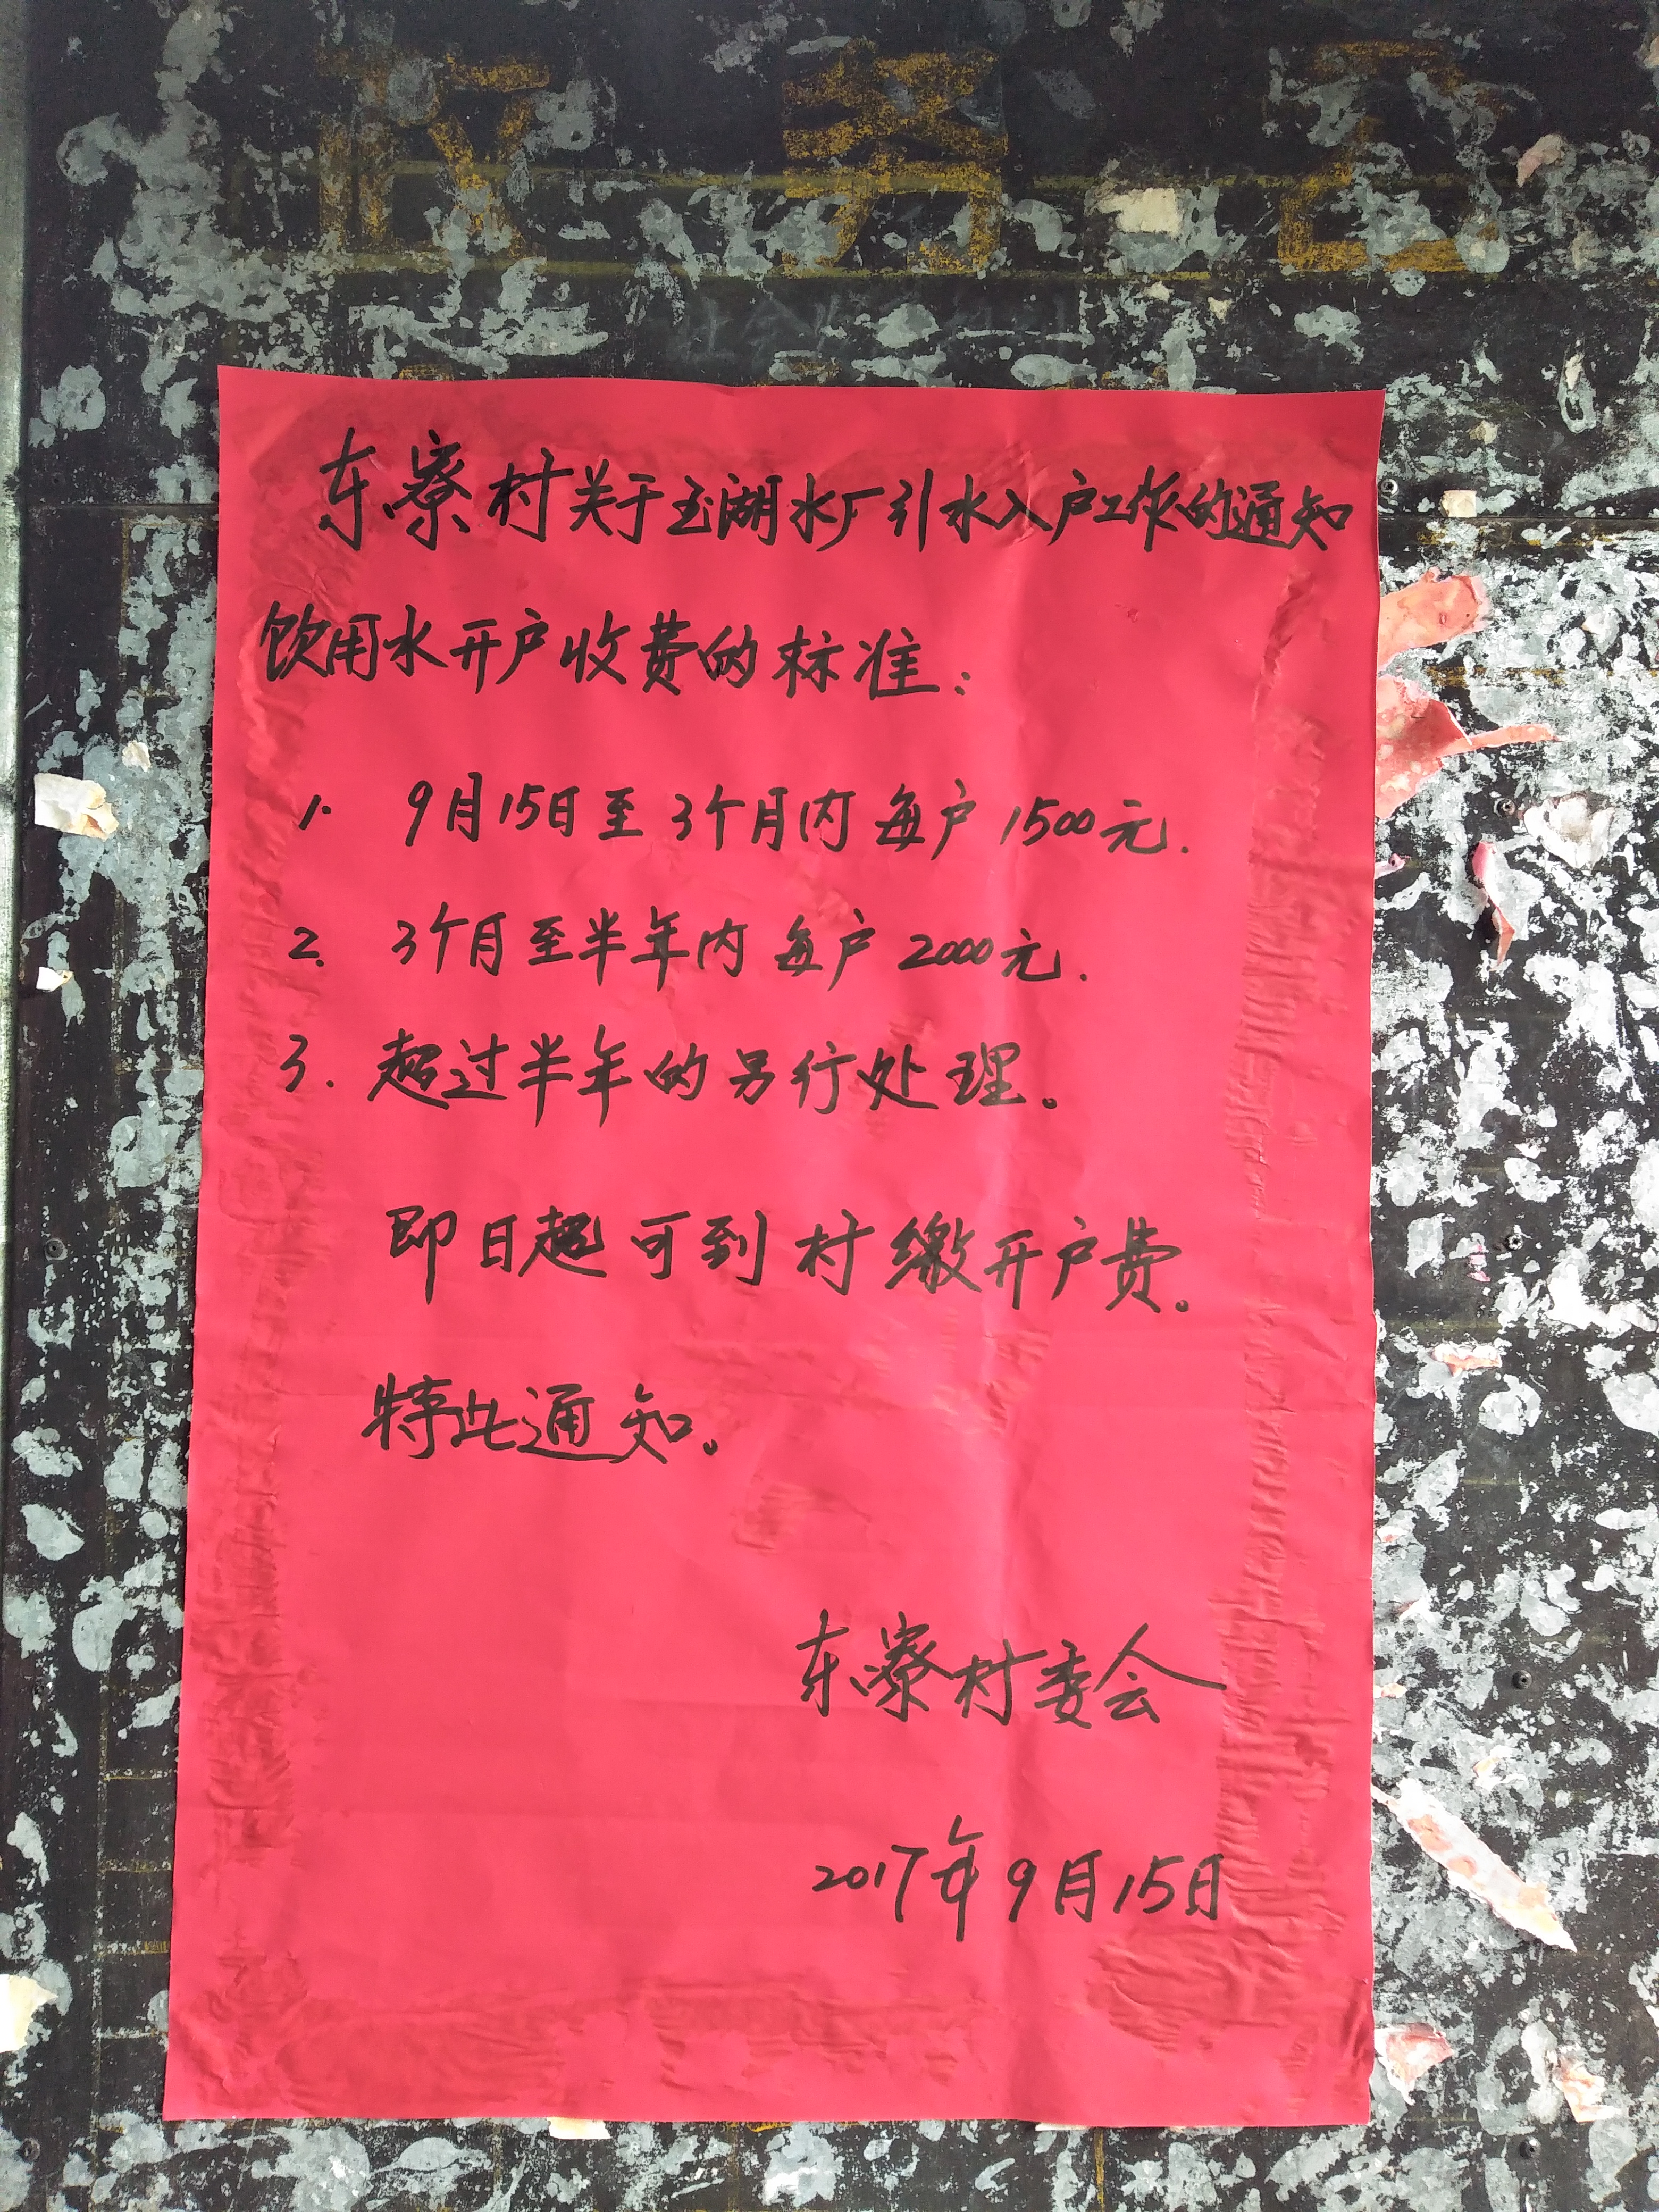 政务公
东寮村关于玉湖水厂引水入户工作的通知
饮用水开户收费的标准：
1. 9月15日至3个月内每户1500元.
2. 3个月至半年内每户2000元.
3. 超过半年的另行处理。
即日起可到村缴开户费。
特此通知。
东寮村委会
2017年9月15日